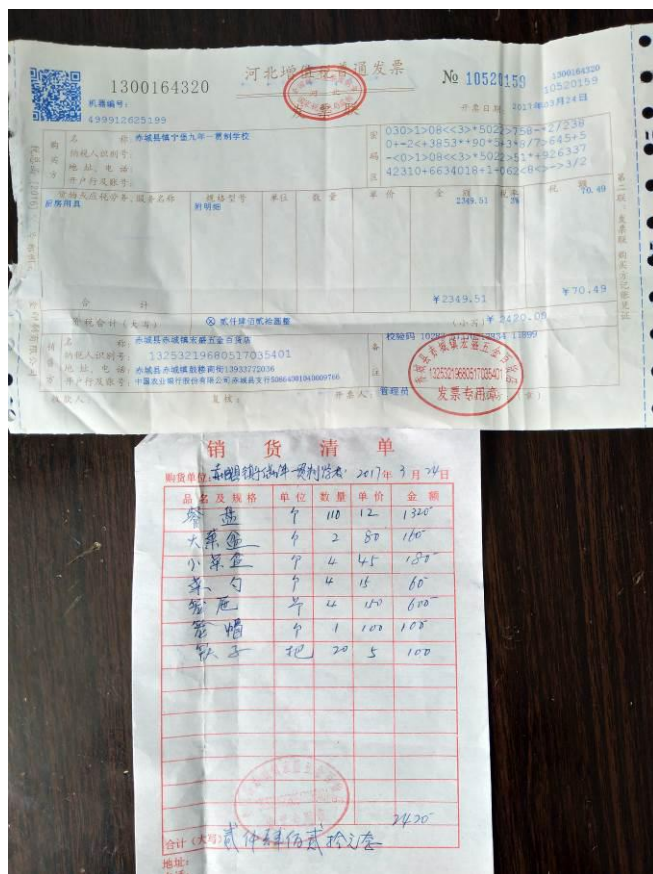 1300164320
河北增值税普通发票
№ 10520159
1300164320
10520159
机器编号:
499912625199
开票日期: 2017年03月24日
购买方
名 称: 赤城县镇宁堡九年一贯制学校
纳税人识别号:
地 址、电 话:
开户行及账号:
密码区
030>1>08<<3>*5022>758-*27238
0+-2<+3853**90*5+3*8/7>645+5
-<0>1>08<<3>*5022>51*+926337
42310+6634018+1-062<8<>->3/2
货物或应税劳务、服务名称 规格型号 单位 数量 单价 金额 税率 税额
厨房用具 附明细 2349.51 3% 70.49
合 计 ¥2349.51 ¥70.49
价税合计(大写) ⊗ 贰仟肆佰贰拾圆整 (小写) ¥2420.00
销售方
名 称: 赤城县赤城镇宏盛五金百货店
纳税人识别号: 13253219680517035401
地 址、电 话: 赤城县赤城镇鼓楼南街13933772036
开户行及账号: 中国农业银行股份有限公司赤城县支行
备注
校验码
赤城县赤城镇宏盛五金百货店
13253219680517035401
发票专用章
收款人: 复核: 开票人: 管理员
第二联:发票联 购买方记账凭证
销货清单
购货单位: 赤城县镇宁堡九年一贯制学校 2017年3月24日
品名及规格 单位 数量 单价 金额
餐盘 个 110 12 1320
大菜盒 个 2 80 160
小菜盒 个 4 45 180
菜勺 个 4 15 60
笼屉 节 4 150 600
笼帽 个 1 100 100
20 5 100
2420
合计(大写) 贰仟肆佰贰拾元整
地址: